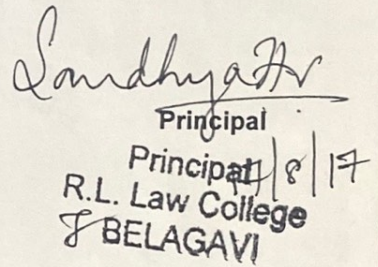 Sandhya Hv
Principal
Principal 17/8/17
R.L. Law College
BELAGAVI